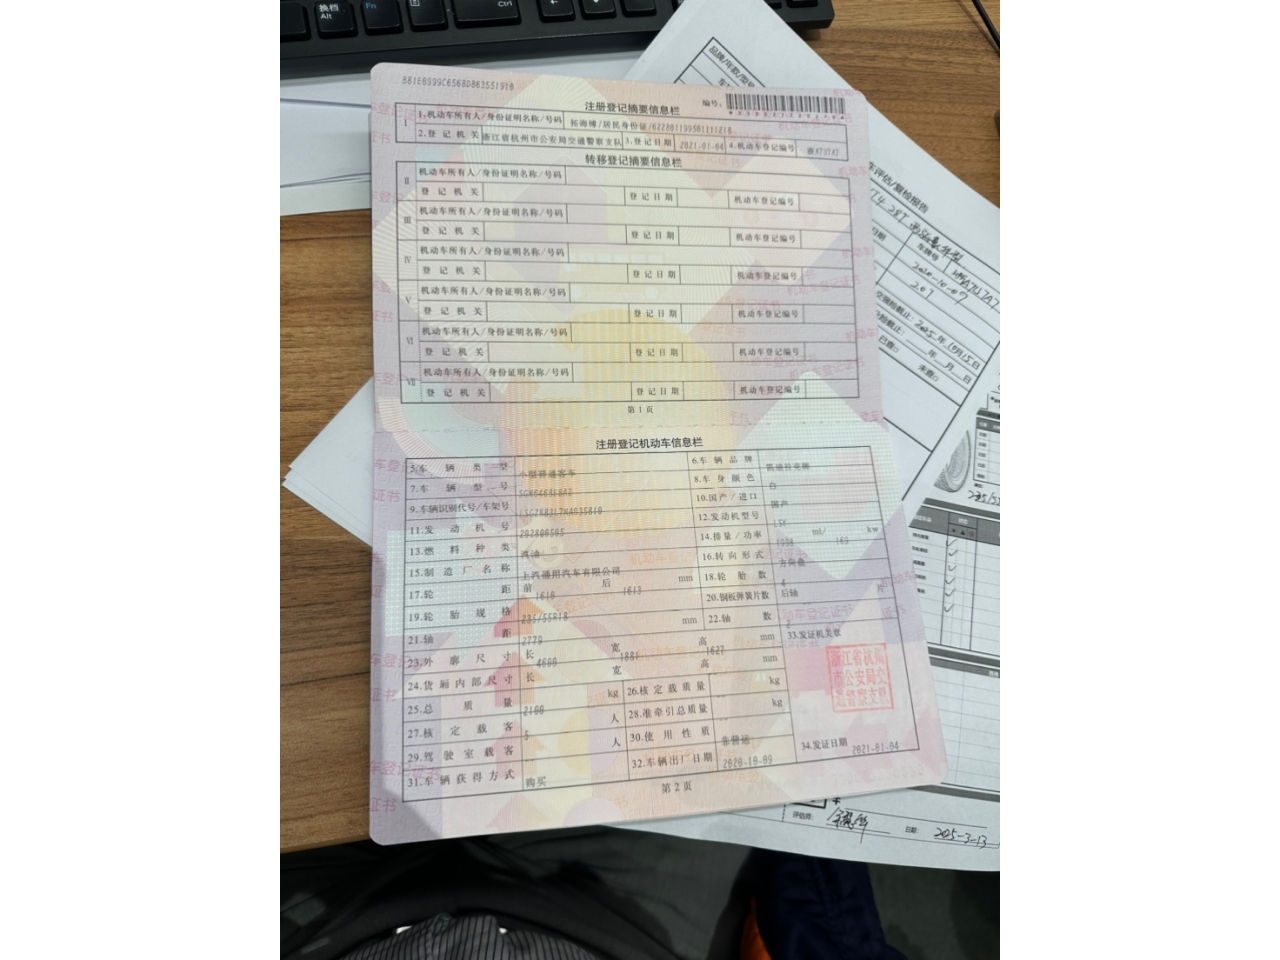 换档
Alt
Fn
Ctrl
881EB999C656BD863551910
注册登记摘要信息栏
编号:
I
1.机动车所有人/身份证明名称/号码
2.登记机关
浙江省杭州市公安局交通警察支队
3.登记日期
2021-01-04
4.机动车登记编号
转移登记摘要信息栏
II
机动车所有人/身份证明名称/号码
登记机关
登记日期
机动车登记编号
III
机动车所有人/身份证明名称/号码
登记机关
登记日期
机动车登记编号
IV
机动车所有人/身份证明名称/号码
登记机关
登记日期
机动车登记编号
V
机动车所有人/身份证明名称/号码
登记机关
登记日期
机动车登记编号
VI
机动车所有人/身份证明名称/号码
登记机关
登记日期
机动车登记编号
VII
机动车所有人/身份证明名称/号码
登记机关
登记日期
机动车登记编号
第1页
注册登记机动车信息栏
5.车辆类型
小型普通客车
6.车辆品牌
7.车辆型号
8.车身颜色
白
9.车辆识别代号/车架号
10.国产/进口
国产
11.发动机号
12.发动机型号
LSY
13.燃料种类
汽油
14.排量/功率
1998 ml/ 169 kw
15.制造厂名称
上汽通用汽车有限公司
16.转向形式
方向盘
17.轮距
前 1610 后 1613 mm
18.轮胎数
4
19.轮胎规格
235/55R18
20.钢板弹簧片数
后轴 片
21.轴距
2779 mm
22.轴数
2
23.外廓尺寸
长 4600 宽 1881 高 1627 mm
33.发证机关章
浙江省杭州市公安局交通警察支队
24.货厢内部尺寸
长 宽 高 mm
25.总质量
2100 kg
26.核定载质量
kg
27.核定载客
5 人
28.准牵引总质量
kg
29.驾驶室载客
人
30.使用性质
非营运
31.车辆获得方式
购买
32.车辆出厂日期
2020-10-09
34.发证日期
2021-01-04
第2页
品牌/年款/型号
车评估/复检报告
车牌号
评估师:
日期:
2025-3-13